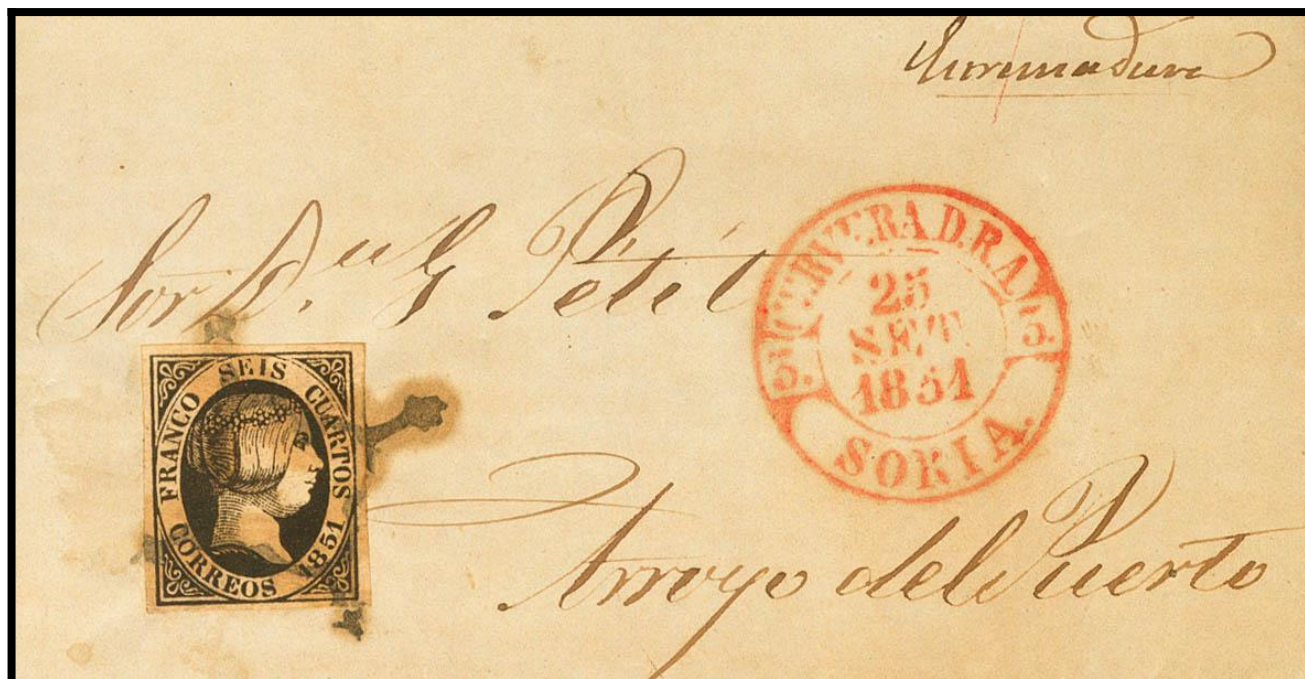 Extremadura
Sor Dn. G Petit
CERVERA D. R. A.
25
SET.
1851
SORIA.
FRANCO SEIS CUARTOS
CORREOS 1851
Arroyo del Puerto